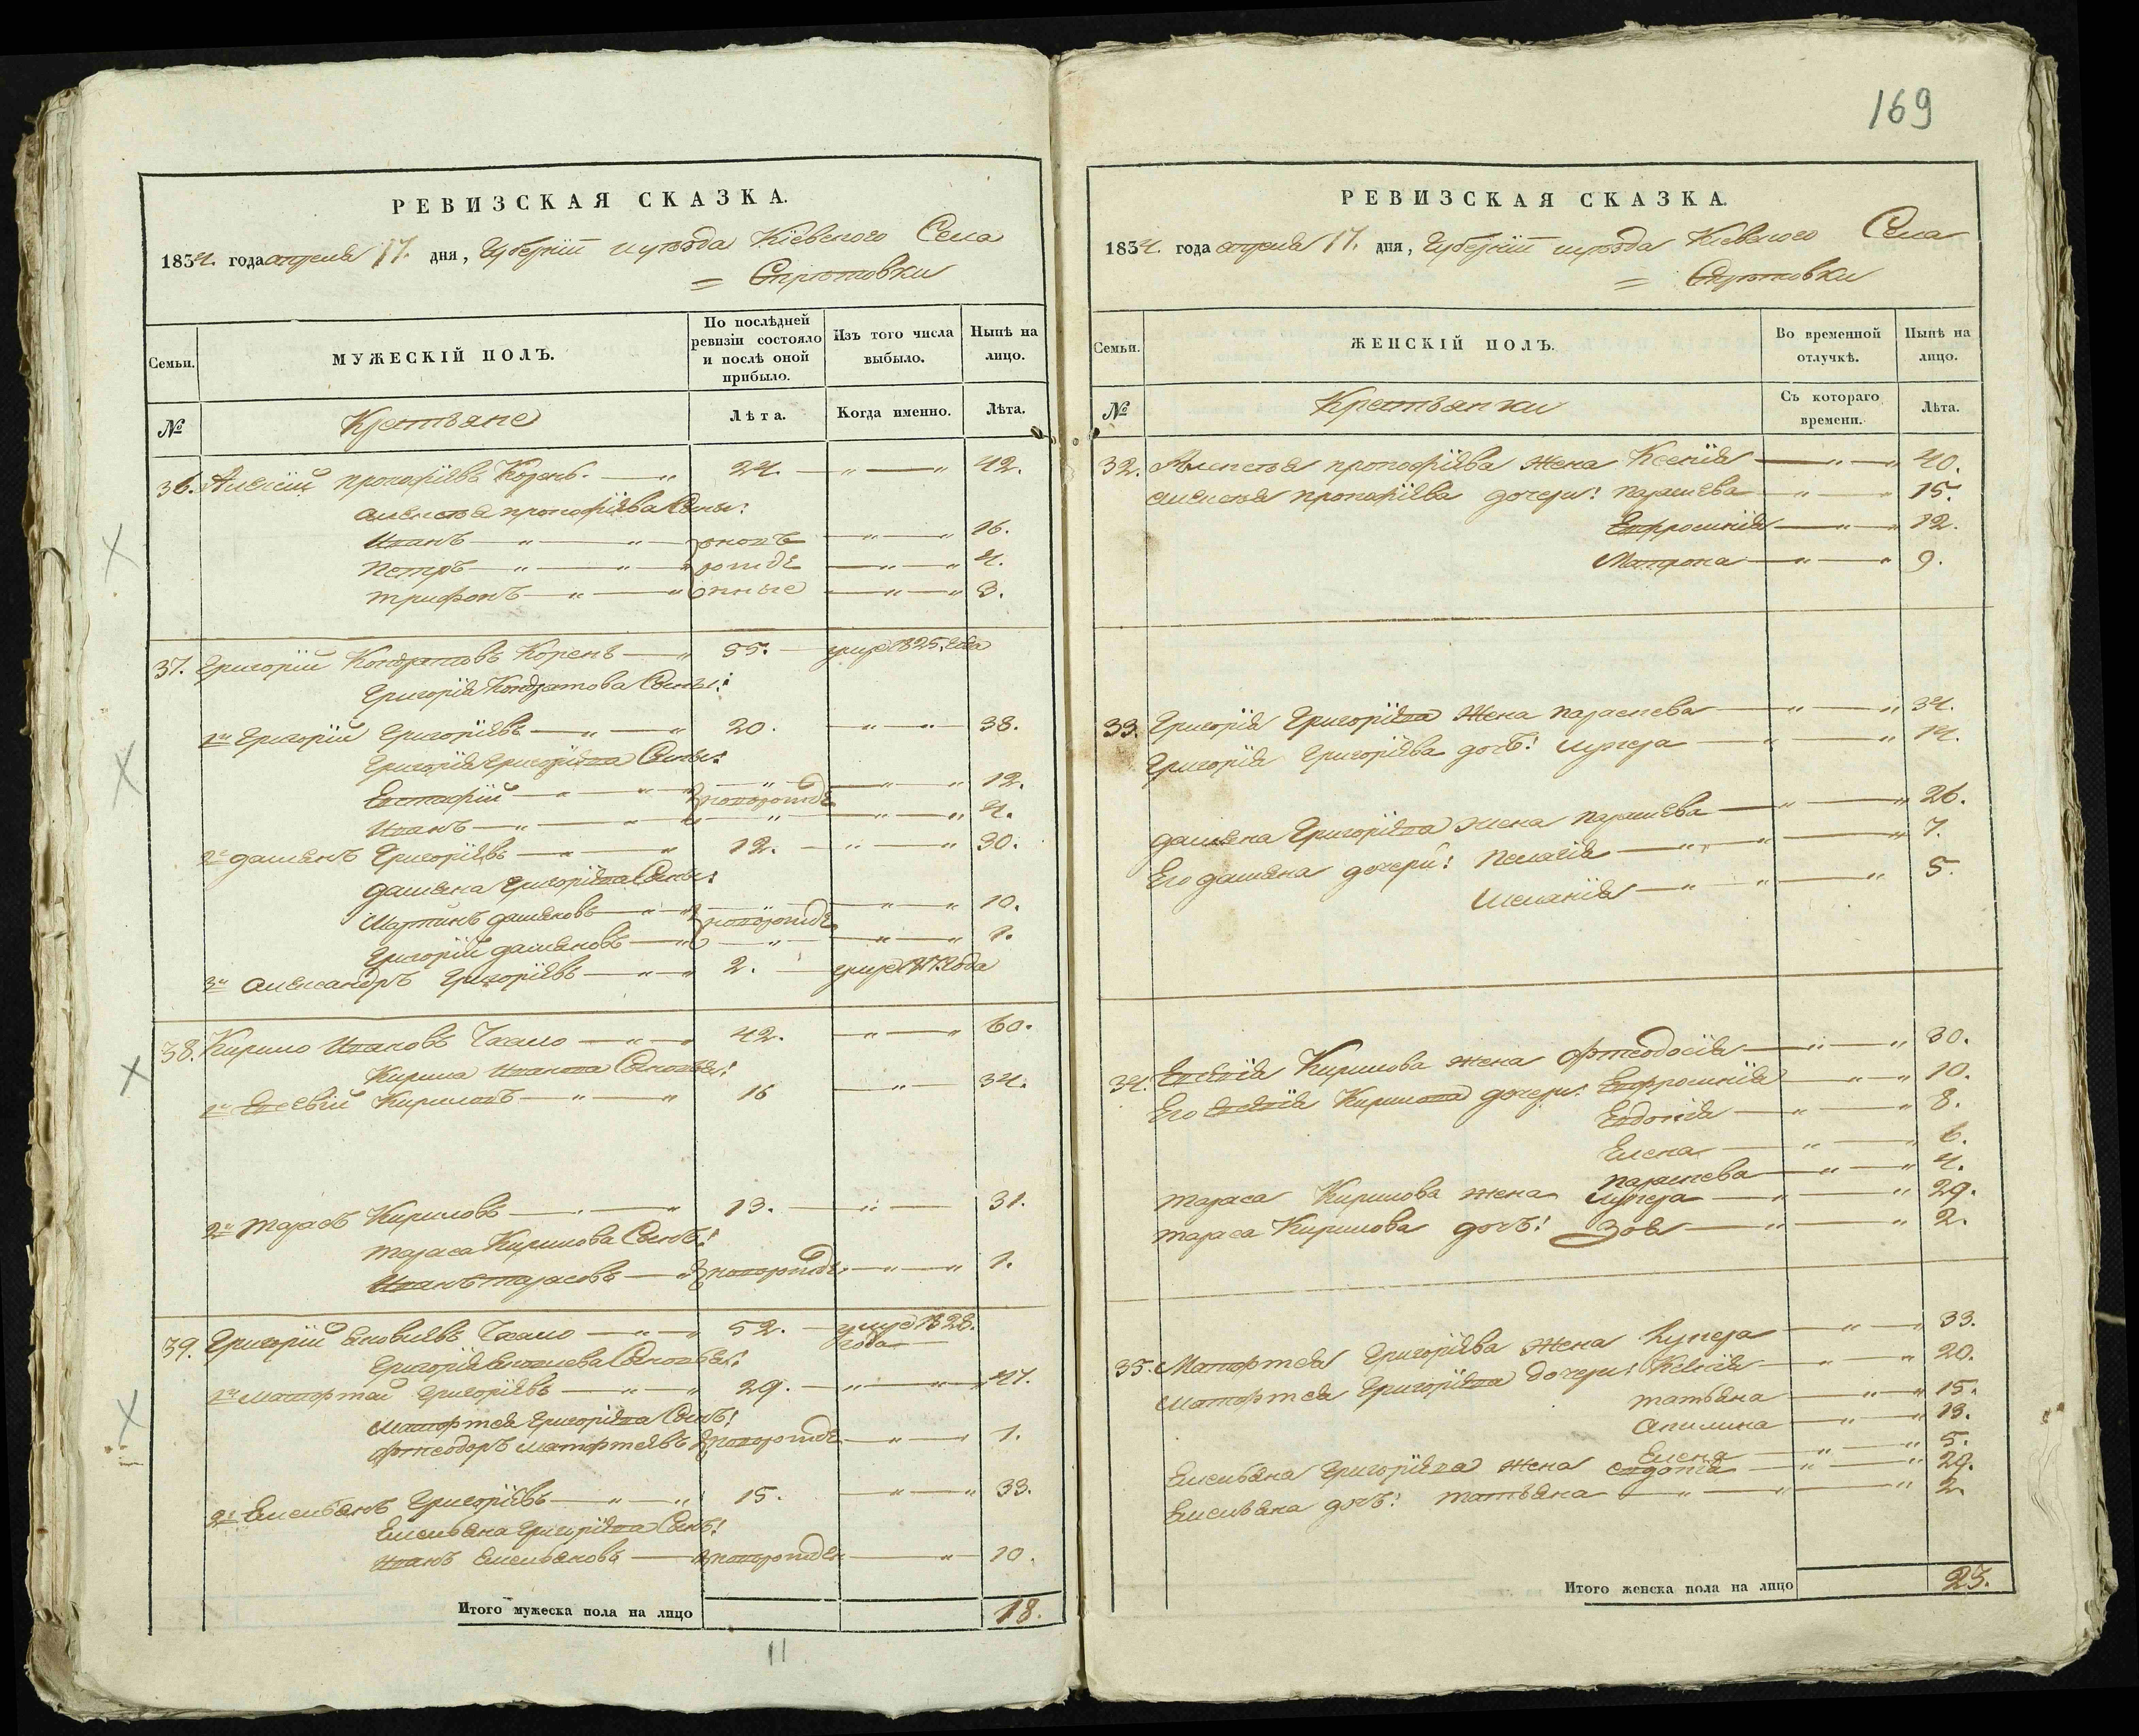 РЕВИЗСКАЯ СКАЗКА.
1834. года апреля 17. дня, Губернїи и уѣзда Кіевского Села
=
Семьи.
МУЖЕСКІЙ ПОЛЪ.
По послѣдней ревизіи состояло и послѣ оной прибыло.
Изъ того числа выбыло.
Нынѣ на лицо.
№
Крестьяне
Лѣта.
Когда именно.
Лѣта.
36. Алексій прокофіевъ Корень. — 24. — „ — „ 42.
Алексѣя прокофіева Сыны:
Иванъ — „ — „ новъ — „ — „ 16.
Петръ — „ — „ рожде — „ — „ 4.
трифонъ — „ — „ нные — „ — „ 3.
37. Григорій Кондратовъ Корень — „ 55. — умре 1825. года
Григорія Кондратова Сыны:
1й Григорій Григоріевъ — „ — „ 20. — „ — „ 38.
Григорія Григоріева Сыны:
Евстафій — „ — „ новорожде — „ — „ 12.
Иванъ — „ — „ — „ — „ 4.
2й дамянъ Григоріевъ — „ — „ 12. — „ — „ 30.
дамяна Григоріева Сыны:
Мартинъ дамяновъ — „ — „ новорожде — „ — „ 10.
Григорій дамяновъ — „ — „ — „ — „ 1.
3й Александръ Григоріевъ — „ — „ 2. — умре 1817. года
38. Кирило Ивановъ — „ — „ 42. — „ — „ 60.
Кирила Иванова Сыновья:
1й Евсевій Кириловъ — „ — „ 16 — „ — 34.
2й Тарасъ Кириловъ — „ — „ 13. — „ — 31.
тараса Кирилова Сынъ:
Иванъ тарасовъ — „ новорожде — „ — „ 1.
39. Григорій Яковлевъ — „ — „ 52. — умре 1828. года
Григорія Яковлева Сыновья:
1й Матфтей Григоріевъ — „ — „ 29. — „ — „ 47.
Матфтея Григоріева Сынъ:
Фтеодоръ Матфтеевъ новорожде — „ — 1.
2й Емельянъ Григоріевъ — „ — „ 15. — „ — „ 33.
Емельяна Григоріева Сынъ:
Иванъ Емельяновъ — новорожден — „ — 10.
Итого мужеска пола на лицо 18.
11
169
РЕВИЗСКАЯ СКАЗКА.
1834. года апреля 17. дня, Губернїи и уѣзда Кіевского Села
=
Семьи.
ЖЕНСКІЙ ПОЛЪ.
Во временной отлучкѣ.
Нынѣ на лицо.
№
Крестьянки
Съ котораго времени.
Лѣта.
32. Алексѣя прокофіева жена Ксенія — „ — „ 40.
Алексѣя прокофіева дочери: параскева — „ — „ 15.
Евфросинія — „ — „ 12.
Матрона — „ — „ 9.
33. Григорія Григоріева жена параскева — „ — „ 34.
Григорія Григоріева дочь: — „ — „ 14.
дамяна Григоріева жена параскева — „ — „ 26.
Его дамяна дочери: Пелагія — „ — „ 7.
Меланія — „ — „ 5.
34. Евсевія Кирилова жена Фтеодосія — „ — „ 30.
Его Евсевія Кирилова дочери: Евфросинія — „ — „ 10.
Евдокія — „ — „ 8.
Елена — „ — „ 6.
параскева — „ — „ 4.
тараса Кирилова жена — „ — „ 29.
тараса Кирилова дочь: Зоя — „ — „ 2.
35. Матфтея Григоріева жена — „ — „ 33.
Матфтея Григоріева дочери: — „ — „ 20.
татьяна — „ — „ 15.
Акилина — „ — „ 13.
Елена — „ — „ 5.
Емельяна Григоріева жена — „ — „ 29.
Емельяна дочь: татьяна — „ — „ 2
Итого женска пола на лицо 23.